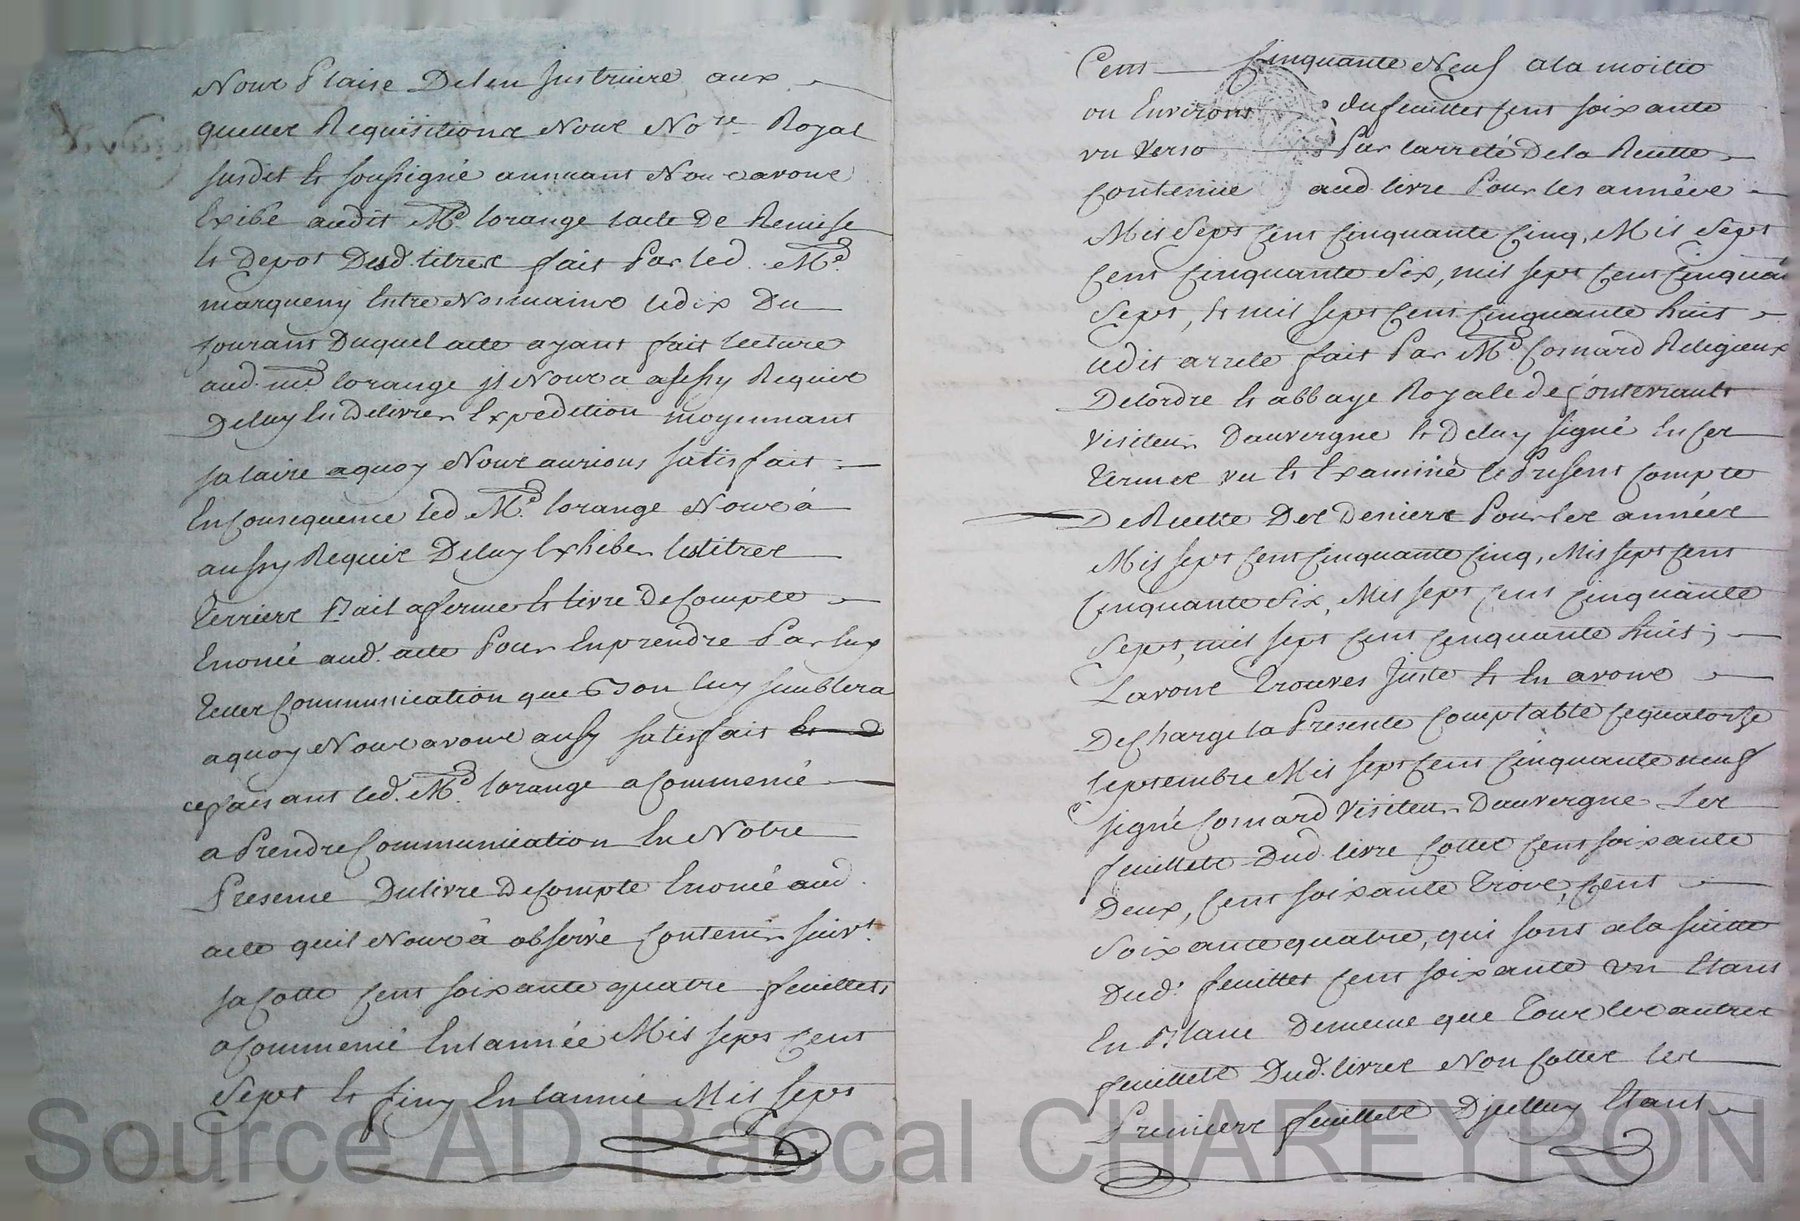 Nous Plaise Delen Instruire aux
quelles Requisitions Nous Nore Royal
susdit et soussigné annuant Nous avons
Exibé audit Me lorange lacte De Remise
et depot Dusd. titres fait Par led. Me
marqueny Entre Nos mains le dix Du
courant Duquel acte ayant fait lecture
aud. me lorange jl Nous a assy Requis
Deluy En Delivrer Expedition moyennant
salaire aquoy Nous aurions satisfait
En Consequence led Me lorange Nous à
aussy Requis Deluy Exhiber les titres
Terriers Bail aferme et livre De Compte
Enoncé aud. acte Pour En prendre Par luy
Telles Communication que Bon luy semblera
aquoy Nous avons aussy satisfait
ce faisant led. Me lorange a Commencé
a Prendre Communication En Notre
Presence Du livre De Compte Enoncé aud.
acte quil Nous à observé Contenir suivt.
sa Cotte Cent soixante quatre feuillets
a Commencé En lannée Mil sept Cent
Sept et finy En lannée Mil sept
Cent Cinquante Neuf ala moitié
ou Environs du feuillet Cent soixante
un Verso Par larrêté De la Recette
Contenue aud livre Pour les années
Mil Sept Cent Cinquante Cinq, Mil Sept
Cent Cinquante Six, mil sept Cent Cinquante
Sept, et mil sept Cent Cinquante huit
ledit arreté fait Par Me Cornard Religieux
De lordre et abbaye Royale de fontevrault
Visiteur Dauvergne et De luy signé En ces
Termes vu et Examiné le Present Compte
De Recette Des Deniers Pour les années
Mil sept Cent Cinquante Cinq, Mil sept Cent
Cinquante Six, Mil sept Cent Cinquante
Sept, mil sept Cent Cinquante huit;
Lavons Trouvés Juste et En avons
Dechargé la Presente Comptable Ce quatorze
septembre Mil sept Cent Cinquante neuf
signé Cornard Visiteur Dauvergne Les
feuillets Dud. livre Cottes Cent soixante
Deux, Cent soixante Trois, Cent
Soixante quatre, qui sont ala suitte
Dud. feuillet Cent soixante un Etant
En Blanc Demême que Tous les autres
feuillets Dud. livres Non Cottes les
Premiers feuillets Djcelluy Etant
Source AD Pascal CHAREYRON